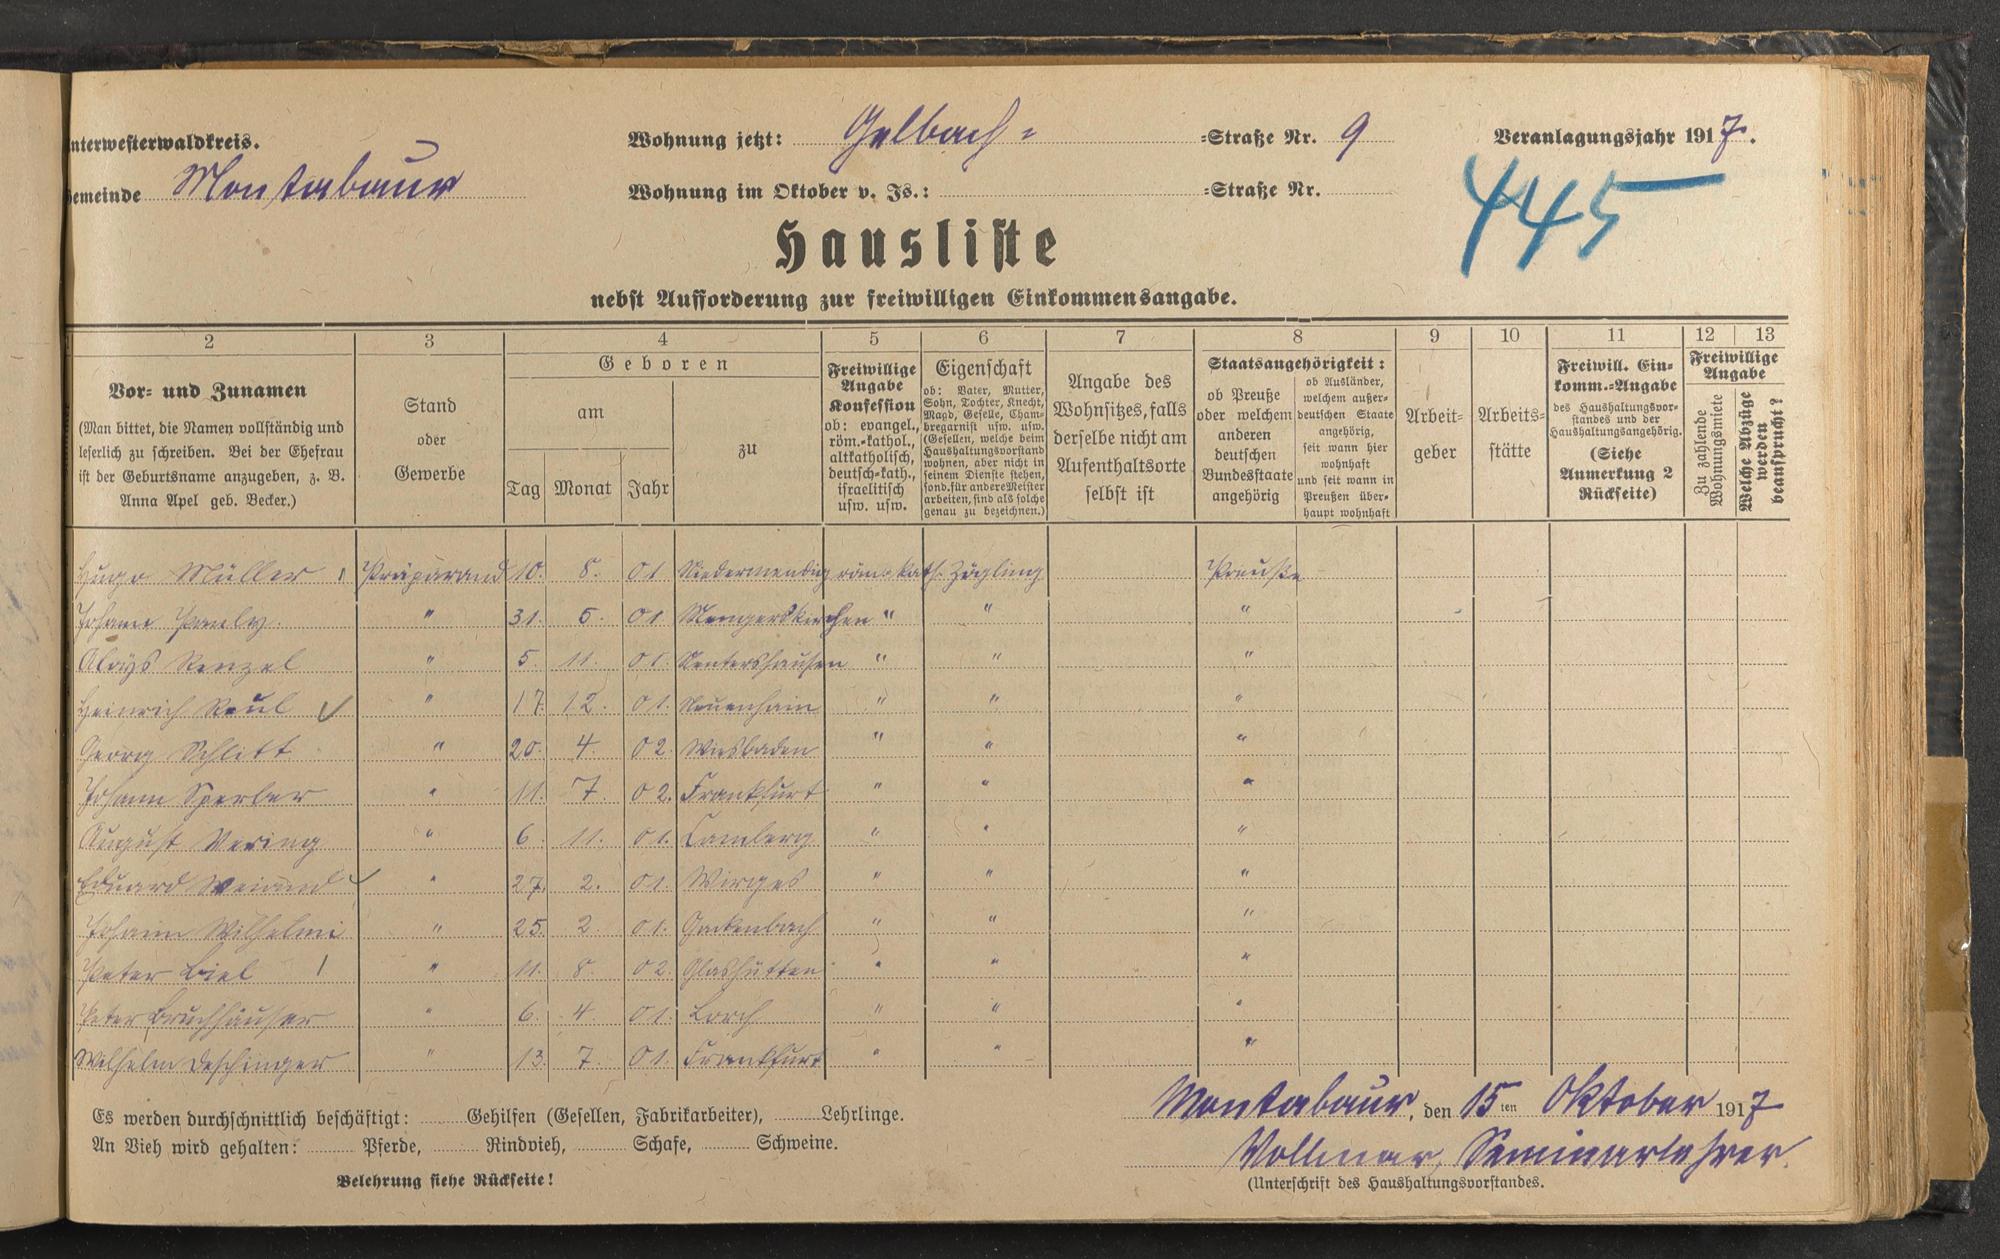 nterwesterwaldkreis.
Wohnung jetzt: Gelbach= =Straße Nr. 9
Veranlagungsjahr 1917.
emeinde Montabaur
Wohnung im Oktober v. Js.: =Straße Nr.
445
Hausliste
nebst Aufforderung zur freiwilligen Einkommensangabe.
2 3 4 5 6 7 8 9 10 11 12 13
Vor- und Zunamen
(Man bittet, die Namen vollständig und
leserlich zu schreiben. Bei der Ehefrau
ist der Geburtsname anzugeben, z. B.
Anna Apel geb. Becker.)
Stand
oder
Gewerbe
Geboren
am
Tag Monat Jahr
zu
Freiwillige
Angabe
Konfession
ob: evangel.,
röm.-kathol.,
altkatholisch,
deutsch-kath.,
israelitisch
usw. usw.
Eigenschaft
ob: Vater, Mutter,
Sohn, Tochter, Knecht,
Magd, Geselle, Cham-
bregarnist usw. usw.
(Gesellen, welche beim
Haushaltungsvorstand
wohnen, aber nicht in
seinem Dienste stehen,
sond. für andere Meister
arbeiten, sind als solche
genau zu bezeichnen.)
Angabe des
Wohnsitzes, falls
derselbe nicht am
Aufenthaltsorte
selbst ist
Staatsangehörigkeit:
ob Preuße
oder welchem
anderen
deutschen
Bundesstaate
angehörig
ob Ausländer,
welchem außer-
deutschen Staate
angehörig,
seit wann hier
wohnhaft
und seit wann in
Preußen über-
haupt wohnhaft
Arbeit-
geber
Arbeits-
stätte
Freiwill. Ein-
komm.-Angabe
des Haushaltungsvor-
standes und der
Haushaltungsangehörig.
(Siehe
Anmerkung 2
Rückseite)
Freiwillige
Angabe
Zu zahlende
Wohnungsmiete
Welche Abzüge
werden
beansprucht?
Hugo Müller Präparand 10. 8. 01 Niedermendig röm.-kath. Zögling Preuße
Johann Pauly " 31. 5. 01 Mengerskirchen " " "
Aloys Renzel " 5. 11. 01. Nentershausen " " "
Heinrich Reul " 17. 12. 01. Neuenhain " " "
Georg Schlitt " 20. 4. 02. Wiesbaden " " "
Johann Sperber " 11. 7. 02. Frankfurt " " "
August Vering " 6. 11. 01. Camberg " " "
Eduard Weiand " 27. 2. 01. Wirges " " "
Johann Wilhelmi " 25. 2. 01. Gackenbach " " "
Peter Biel " 11. 8. 02. Glashütten " " "
Peter Bruchhäuser " 6. 4. 01. Lorch " " "
Wilhelm Deschinger " 13. 7. 01. Frankfurt " " "
Es werden durchschnittlich beschäftigt: Gehilfen (Gesellen, Fabrikarbeiter), Lehrlinge.
Montabaur, den 15ten Oktober 1917
An Vieh wird gehalten: Pferde, Rindvieh, Schafe, Schweine.
Vollmar, Seminarlehrer.
Belehrung siehe Rückseite!
(Unterschrift des Haushaltungsvorstandes.